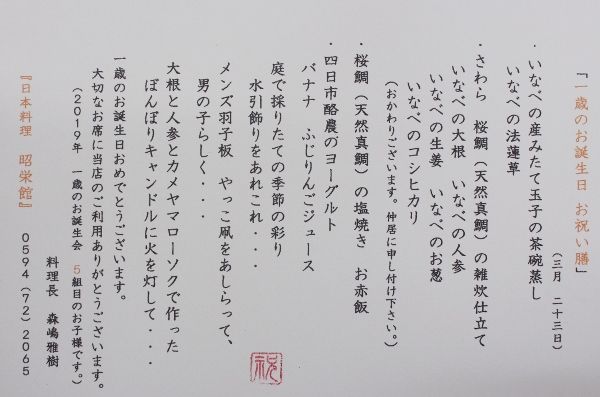 『一歳のお誕生日 お祝い膳』
（三月 二十三日）
・いなべの産みたて玉子の茶碗蒸し
いなべの法蓮草
・さわら 桜鯛（天然真鯛）の雑炊仕立て
いなべの大根 いなべの人参
いなべの生姜 いなべのお葱
いなべのコシヒカリ
（おかわりございます。仲居に申し付け下さい。）
・桜鯛（天然真鯛）の塩焼き お赤飯
・四日市酪農のヨーグルト
バナナ ふじりんごジュース
庭で採りたての季節の彩り
水引飾りをあれこれ・・・
メンズ羽子板 やっこ凧をあしらって、
男の子らしく・・・
大根と人参とカメヤマローソクで作った
ぼんぼりキャンドルに火を灯して・・・
一歳のお誕生日おめでとうございます。
大切なお席に当店のご利用ありがとうございます。
（２０１９年 一歳のお誕生会 ５組目のお子様です。）
料理長 森嶋雅樹
『日本料理 昭栄館』 ０５９４（７２）２０６５
祝